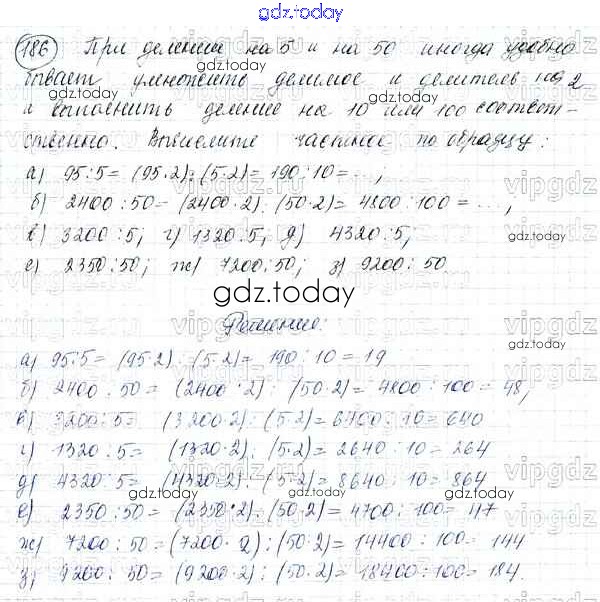 gdz.today
186 При делении на 5 и на 50 иногда удобно
бывает умножить делимое и делитель на 2
и выполнить деление на 10 или 100 соответ-
ственно. Вычислите частное по образцу:
а) 95:5= (95·2):(5·2)= 190:10= ...,
б) 2400:50= (2400·2):(50·2)= 4800:100= ...,
в) 3200:5; г) 1320:5; д) 4320:5;
е) 2350:50; ж) 7200:50; з) 9200:50
gdz.today
Решение:
а) 95:5= (95·2):(5·2)= 190:10=19
б) 2400:50= (2400·2):(50·2)= 4800:100= 48,
в) 3200:5= (3200·2):(5·2)= 6400:10= 640
г) 1320:5= (1320·2):(5·2)= 2640:10= 264
д) 4320:5= (4320·2):(5·2)= 8640:10= 864
е) 2350:50= (2350·2):(50·2)= 4700:100= 47
ж) 7200:50= (7200·2):(50·2)= 14400:100= 144
з) 9200:50= (9200·2):(50·2)= 18400:100= 184.